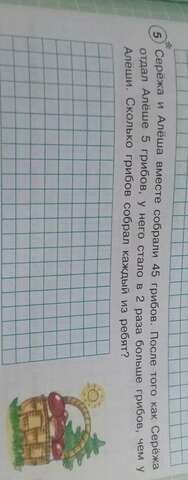 5* Серёжа и Алёша вместе собрали 45 грибов. После того как Серёжа
отдал Алёше 5 грибов, у него стало в 2 раза больше грибов, чем у
Алёши. Сколько грибов собрал каждый из ребят?